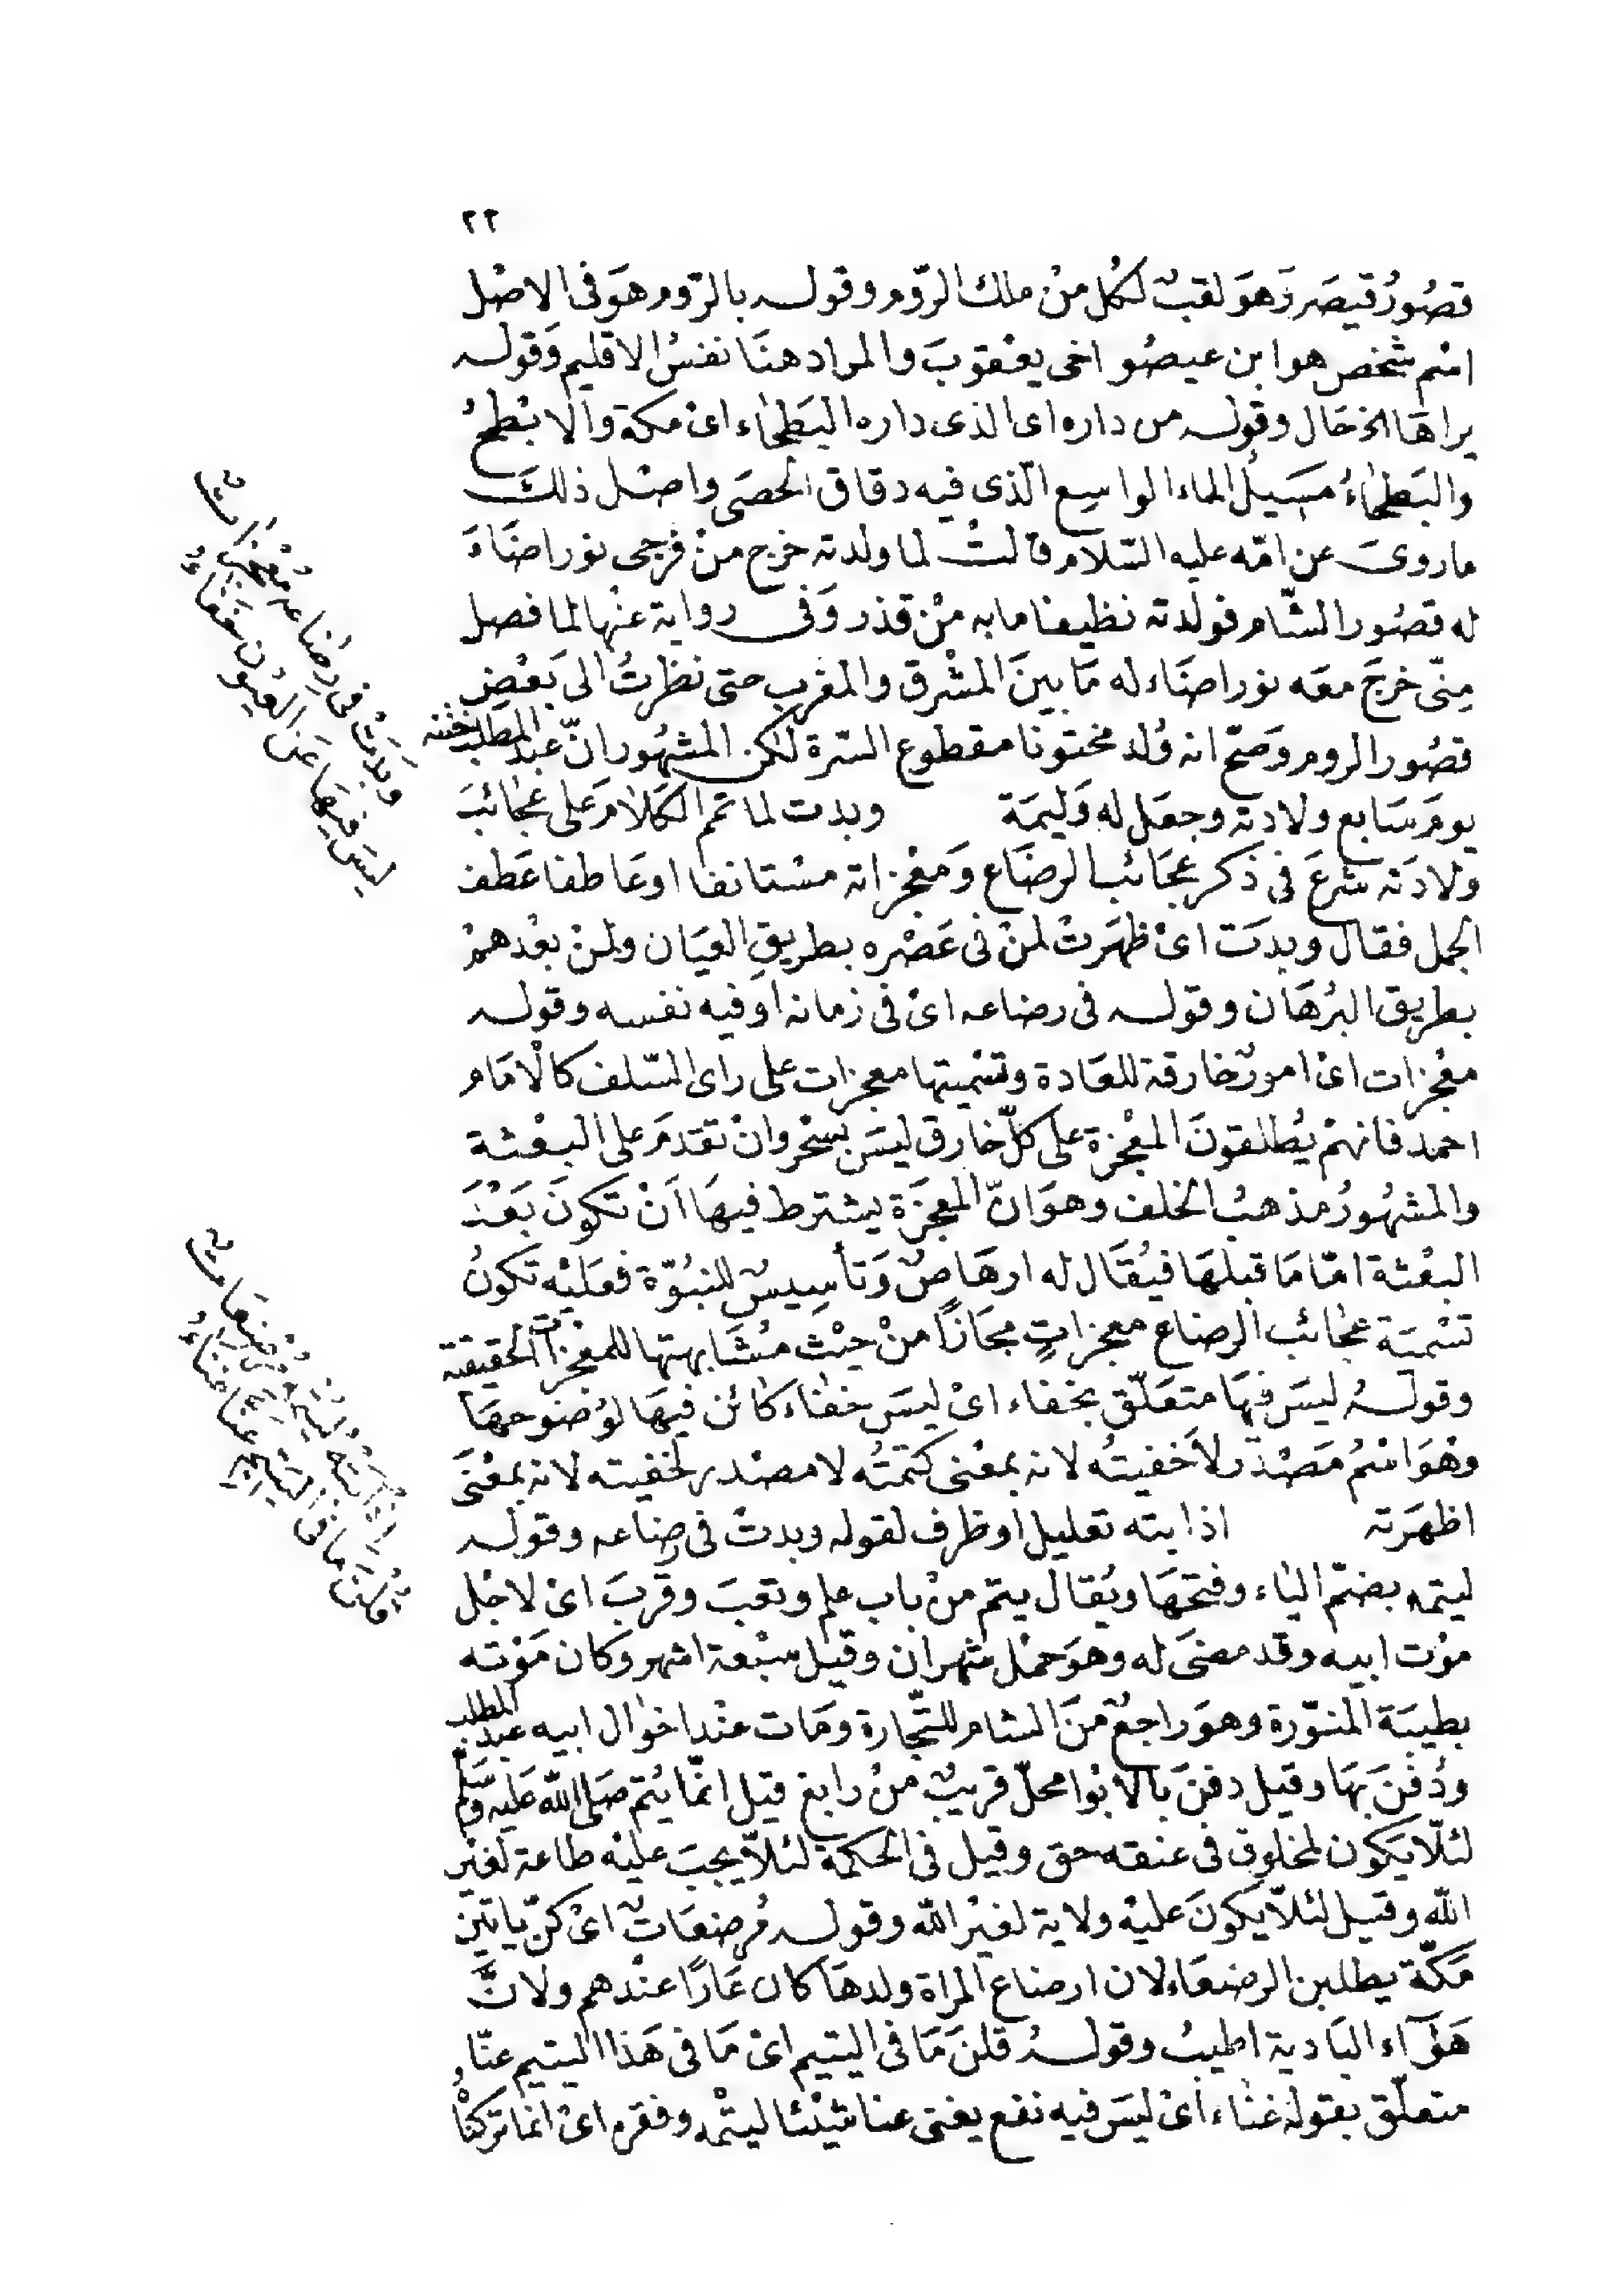 ٢٢
قصُورُ قيصَر وَهوَ لقبٌ لكُل منْ ملك الرّوم وقوله بالرّوم هوَ فى الاصْل
اسْم شخص هو ابن عيصُو اخى يعْقوبَ والمراد هنَا نفسُ الاقليم وَقوله
يراهَا الخ حَال وقوله من داره اى الذى داره البَطحَاء اىْ مكة والابْطحُ
والبَطحَاءُ مسَيلُ الماء الواسِع الّذى فيه دقاق الحصَى واصْل ذلكَ
ما روىَ عن امّه عليه السّلام قالتْ لما ولدته خرج منْ فرجى نورٌ اضَاءَ
له قصُور الشّام فولدته نظيفا ما به منْ قذر وَفى رواية عنْها لما فصل
مِنّى خرجَ معَه نور اضَاء له مَا بينَ المشْرق والمغرب حتى نظرتُ الى بَعْضِ
قصُور الروم وَصحّ انه وُلد مختونا مقطوع السّرة لكن المشهُور انّ عبد المطلب ختنه
يومَ سَابع ولادته وجعَل له وَليمَة وبدت لما تمم الكَلامَ على عجَائبَ
ولادَته شرعَ فى ذكر عجَائب الرضَاع وَمعْجزاته مسْتانفا اوعَاطفا عَطف
الجمل فقال وبدَت اىْ ظهَرتْ لمنْ فى عَصْره بطريقِ العيَان ولمنْ بعْدهمْ
بطريق البُرهَان وقوله فى رضاعه اىْ فى زمانه اوفيه نفسه وقوله
معْجزات اىْ امورٌ خارقة للعَادة وتسْميتها معجزات على راى السّلف كالْامَام
احمد فانهمْ يُطلقونَ المعْجزة على كلّ خارق ليسَ بسحْر وانْ تقدمَ على البعْثة
والمشهُورُ مذهبُ الخلف وهوَ انّ المعجزَة يشترط فيهَا اَنْ تكونَ بَعْدَ
البعْثة امّا مَا قبلهَا فيُقَال له ارهَاصٌ وَتأسِيسٌ للنبُوّة فعَليْه تكونُ
تسْميَة عجائب الرضاع معجزاتٍ مجَازًا منْ حيْث مُشَابهتها للمعْجزات الحقيقية
وقولهُ ليسَ فيهَا متعَلّق بخفاء اىْ ليسَ خفاء كائن فيهَا لوُضوحهَا
وهْوَ اسْمُ مَصْدرٌ لاَخفيتُه لانه بمعْنى كتمْتُه لا مصْدر لخفيته لانه بمعْنَى
اظهَرته اذ ابته تعليل اوظرف لقوله وبدتْ فى رضاعه وقوله
ليتمه بضمّ الياء وفتحهَا ويُقال يتم منْ باب علم وتعَبَ وقربَ اىْ لاجْل
موْت ابيه وقد مضَى له وهوَ حمْل شهران وقيل سبْعة اشهر وكان مَوْته
بطيبَة المنوّرة وهوَ راجعٌ منَ الشام للتّجارة ومَات عنْد اخوال ابيه عبد المطلب
ودُفنَ بهَا وقيل دفنَ بالابْوا محلّ قريبٌ منْ رابغ قيل انّما يُتم صَلى اللّه عَليه وَسَلّم
لئلّا يَكون لمخلوق فى عنقه حق وقيل فى الحكمة لئلّا يجبَ عليْه طاعة لغيْر
اللّه وقيل لئلّا يكونَ عليْه ولاية لغيْر اللّه وقوله مُرضعَاتٌ اىْ كنّ ياتينَ
مَكّة يطلبن الرضعَاء لان ارضاع المراة ولدهَا كان عَارًا عنْدهم ولانَّ
هَوَآء البَادية اطيبُ وقولهُ قلنَ مَا فى اليتيم اىْ مَا فى هَذا اليتيم عنّا
متعلّق بقوله غنَاء اىْ ليسَ فيه نفع يغنى عنا شيْئا ليتْمه وفقره اىْ انما تركنْا
وبَدَتْ فى رضَاعه مُعْجزَاتٌ
ليسَ فيهَا عَن العيُون خفَاءُ
اذْ ابَتْهُ ليُتْمه مُرْضِعَاتٌ
قُلْنَ مَا فى اليَتيم عَنّا غنَاءُ